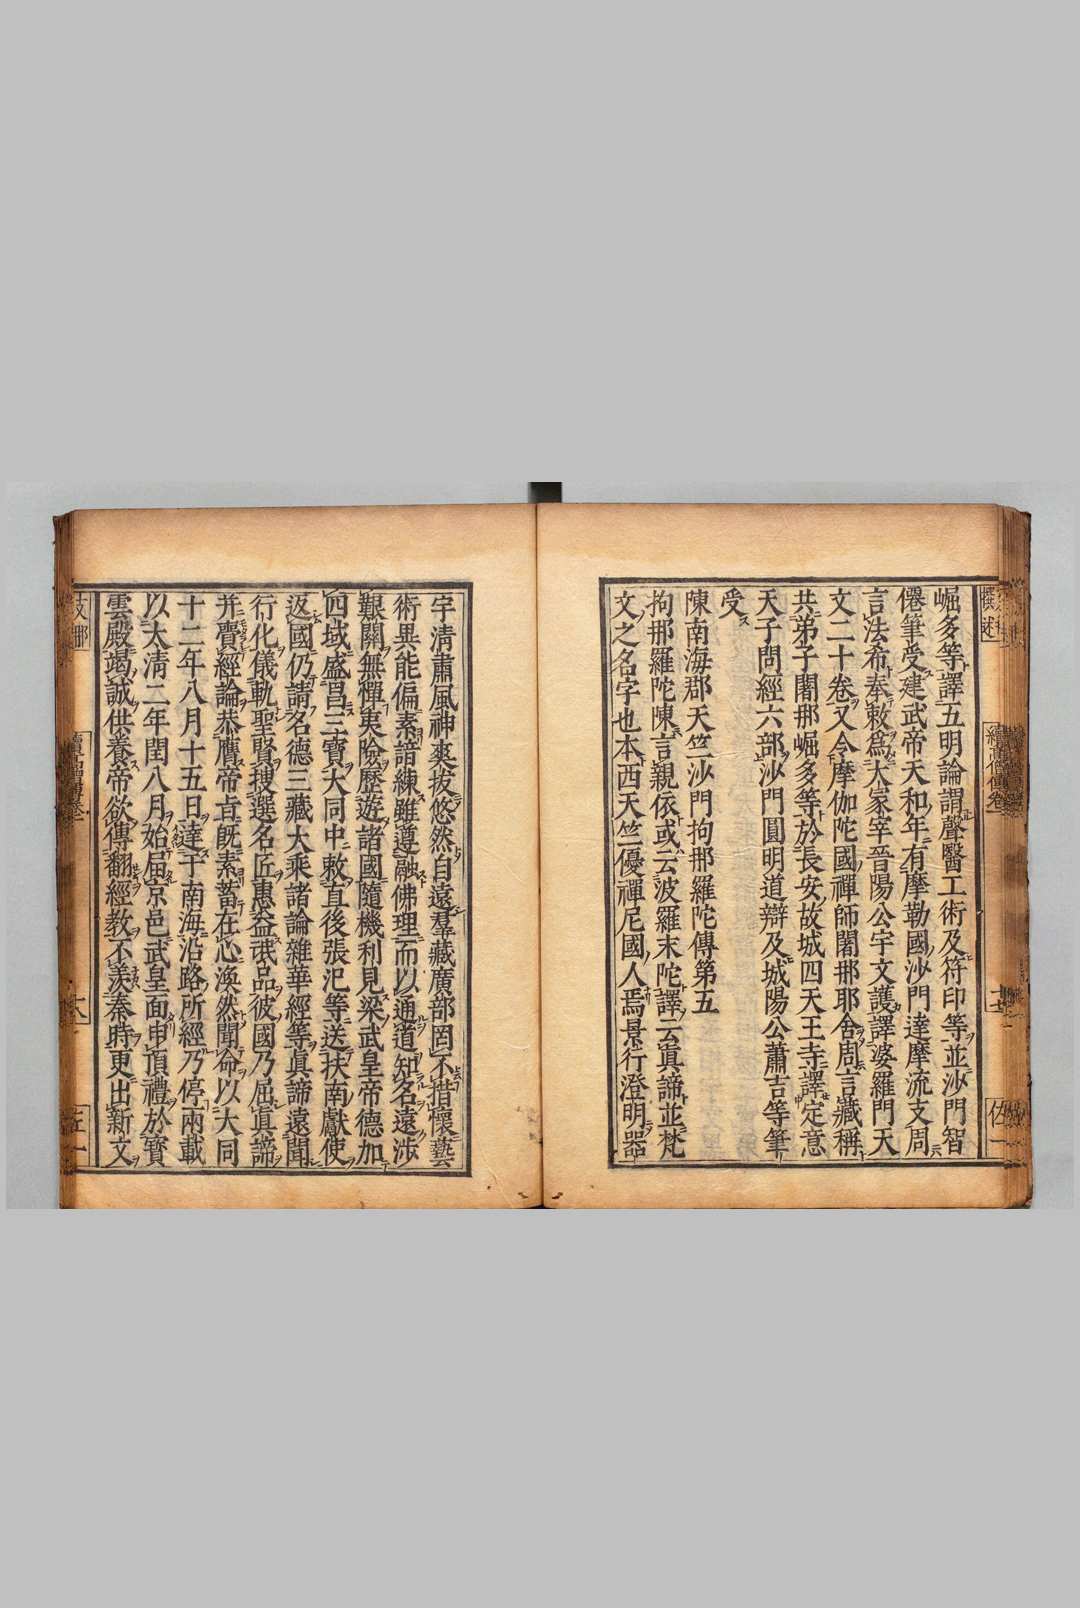 崛多等譯五明論謂聲醫工術及符印等並沙門智
僊筆受建武帝天和年有摩勒國沙門達摩流支周
言法希奉敕爲大冢宰晉陽公宇文護譯婆羅門天
文二十卷又令摩伽陀國禪師闍那耶舍周言藏稱
共弟子闍那崛多等於長安故城四天王寺譯定意
天子問經六部沙門圓明道辯及城陽公蕭吉等筆
受
陳南海郡天竺沙門拘那羅陀傳第五
拘那羅陀陳言親依或云波羅末陀譯云眞諦並梵
文之名字也本西天竺優禪尼國人焉景行澄明器
宇清肅風神爽拔悠然自遠羣藏廣部罔不措懷藝
術異能偏素諳練雖遵融佛理而以通道知名遠涉
艱關無憚夷險歷遊諸國隨機利見梁武皇帝德加
四域盛昌三寶大同中敕直後張汜等送扶南獻使
返國仍請名德三藏大乘諸論雜華經等眞諦遠聞
行化儀軌聖賢搜選名匠惠益氓品彼國乃屈眞諦
并賷經論恭膺帝旨旣素蓄在心渙然聞命以大同
十二年八月十五日達于南海沿路所經乃停兩載
以太清二年閏八月始屆京邑武皇面申頂禮於寶
雲殿竭誠供養帝欲傳翻經教不羡秦時更出新文